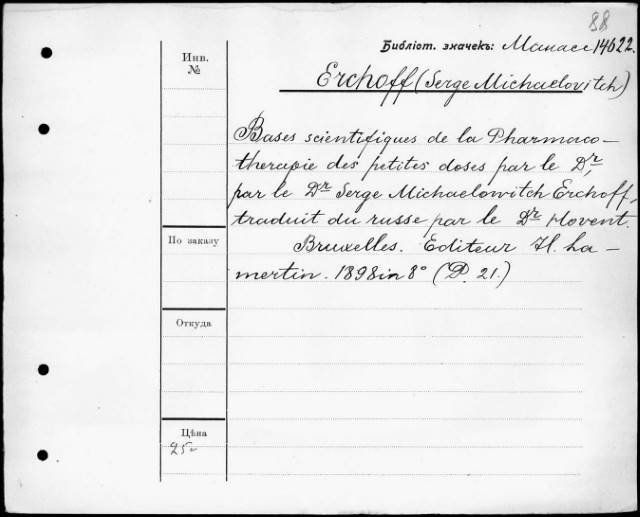 88
Библіот. значекъ: Манасс 14622.
Инв.
№
Erchoff (Serge Michaelovitch)
Bases scientifiques de la Pharmaco-
therapie des petites doses par le Dr,
par le Dr Serge Michaelowitch Erchoff,
traduit du russe par le Dr Hovent.
По заказу
Bruxelles. Editeur H. La-
mertin. 1898 in 8° (P. 21.)
Откуда
Цѣна
25